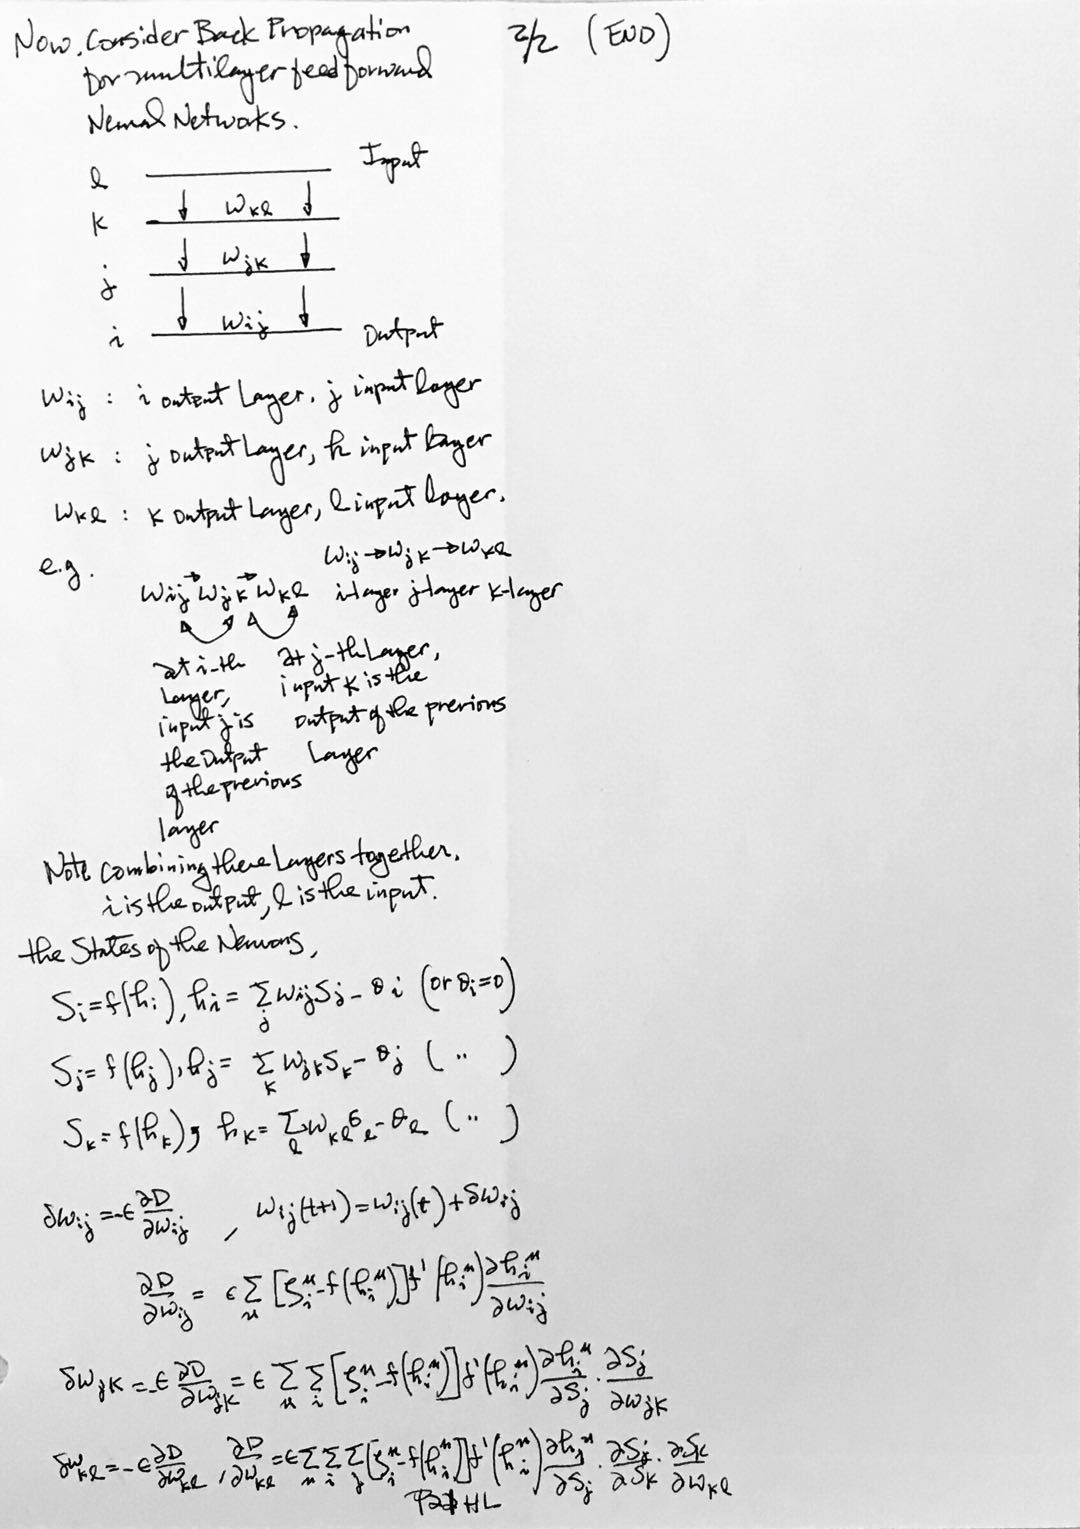 Now, Consider Back Propagation
for multilayer feedforward
Neural Networks.
2/2 (END)
l Input
k wkl
j wjk
i wij Output
wij : i output Layer, j input layer
wjk : j output Layer, k input layer
wkl : k output Layer, l input layer.
e.g. wij → wjk → wkl
wij → wjk → wkl i-layer j-layer k-layer
at i-th
Layer,
input j is
the output
of the previous
layer
at j-th Layer,
input k is the
output of the previous
Layer
Note combining these Layers together,
i is the output, l is the input.
the States of the Neurons,
Si = f(hi), hi = Σj wij Sj - θi (or θi=0)
Sj = f(hj), hj = Σk wjk Sk - θj ( " )
Sk = f(hk), hk = Σl wkl σl - θl ( " )
δwij = -ϵ ∂D/∂wij , wij(t+1) = wij(t) + δwij
∂D/∂wij = ϵ Σμ [ζi^μ - f(hi^μ)] f'(hi^μ) ∂hi^μ/∂wij
δwjk = -ϵ ∂D/∂wjk = ϵ Σμ Σi [ζi^μ - f(hi^μ)] f'(hi^μ) ∂hi^μ/∂Sj · ∂Sj/∂wjk
δwkl = -ϵ ∂D/∂wkl , ∂D/∂wkl = ϵ Σμ Σi Σj [ζi^μ - f(hi^μ)] f'(hi^μ) ∂hi^μ/∂Sj · ∂Sj/∂Sk · ∂Sk/∂wkl
HL